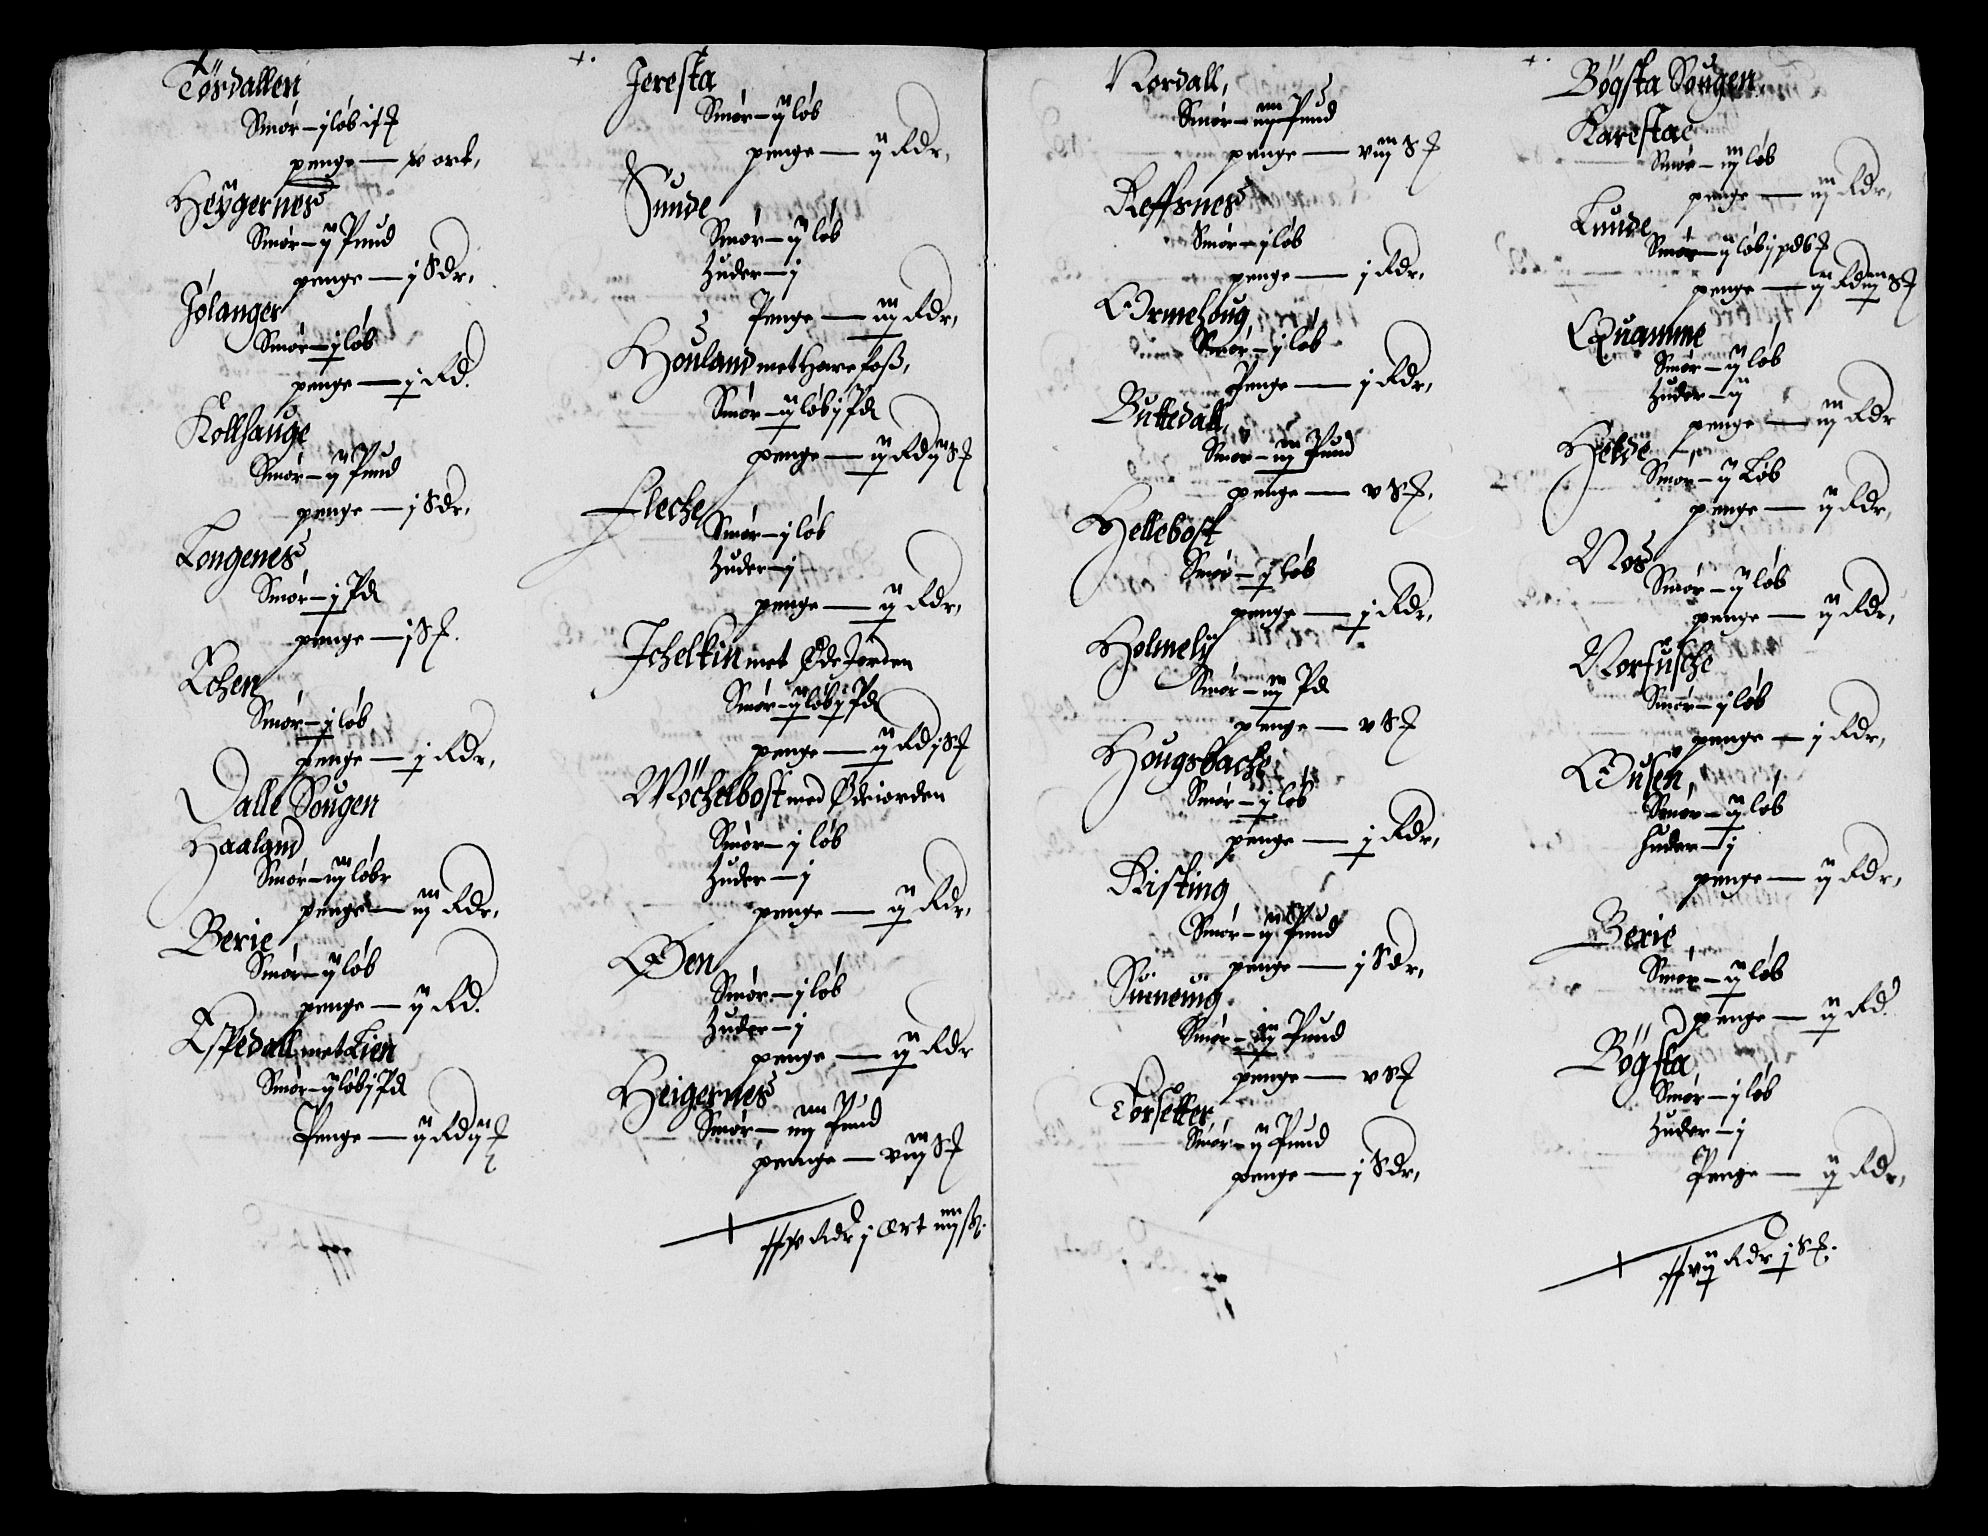 Tørdallen
Smør — j løb
penge — v ort,
Heÿgernes
Smør — ij Pund
penge — j Sdr,
Jølanger
Smør — j løb
penge — j Rd.
Kollhauge
Smør — ij Pund
penge — j Sdr,
Longenes
Smør — j Pd
penge — j S
Echen
Smør — j løb
penge — j Rdr,
Dalle Sougen
Haaland
Smør — iij løbr
penge — iij Rdr,
Berie
Smør — ij løb
penge — ij Rd.
Espedall met Lien
Smør — ij løb j Pd
Penge — ij Rd ij
Jeresta
Smør — ij løb
penge — ij Rdr,
Sunde
Smør — ij løb
Huder — j
Penge — iij Rdr,
Houland met Harefoss,
Smør — ij løb j Pd
penge — ij Rd ij S
Fleche
Smør — j løb
Huder — j
penge — ij Rdr,
Ichelkin met Øde Jorden
Smør — ij løb j Pd
penge — ij Rd j S
Möchelbost med Ødeiorden
Smør — j løb
Huder — j
penge — ij Rdr,
Øen
Smør — j løb
Huder — j
penge — ij Rdr
Heigernes
Smør — iiij Pund
penge — viij S
Rdr j ort iiij sk.
Nordall,
Smør — iiij Pund
penge — viij S
Reffsnes
Smør — j løb
penge — j Rdr,
Ormehoug
Smør — j løb
Penge — j Rdr,
Guttedall,
Smør — iij Pund
penge — v S
Hellebost
Smør — j løb
penge — j Rdr,
Holmelij
Smør — iij Pd
penge — v S
Hougsbache
Smør — j løb
penge — j Rdr,
Risting
Smør — ij Pund
penge — j Sdr,
Sinneüng
Smør — iij Pund
penge — v S
Torsetter,
Smør — ij Pund
penge — j Sdr,
Bøgsta Sougen
Karestac
Smør — iij løb
penge — iij Rdr,
Lunde
Smør — ij løb j pd 6
penge — ij Rd iiij S
Quamme
Smør — ij løb
Huder — ij
penge — iij Rdr
Helde
Smør — ij Løb
penge — ij Rdr,
Nos
Smør — ij løb
penge — ij Rdr,
Norfusche
Smør — j løb
penge — j Rdr,
Ousen
Smør — ij løb
huder — j
penge — ij Rdr,
Berie
Smør — ij løb
penge — ij Rd.
Bøgsta
Smør — j løb
Huder — j
Penge — ij Rdr,
vij Rdr j S